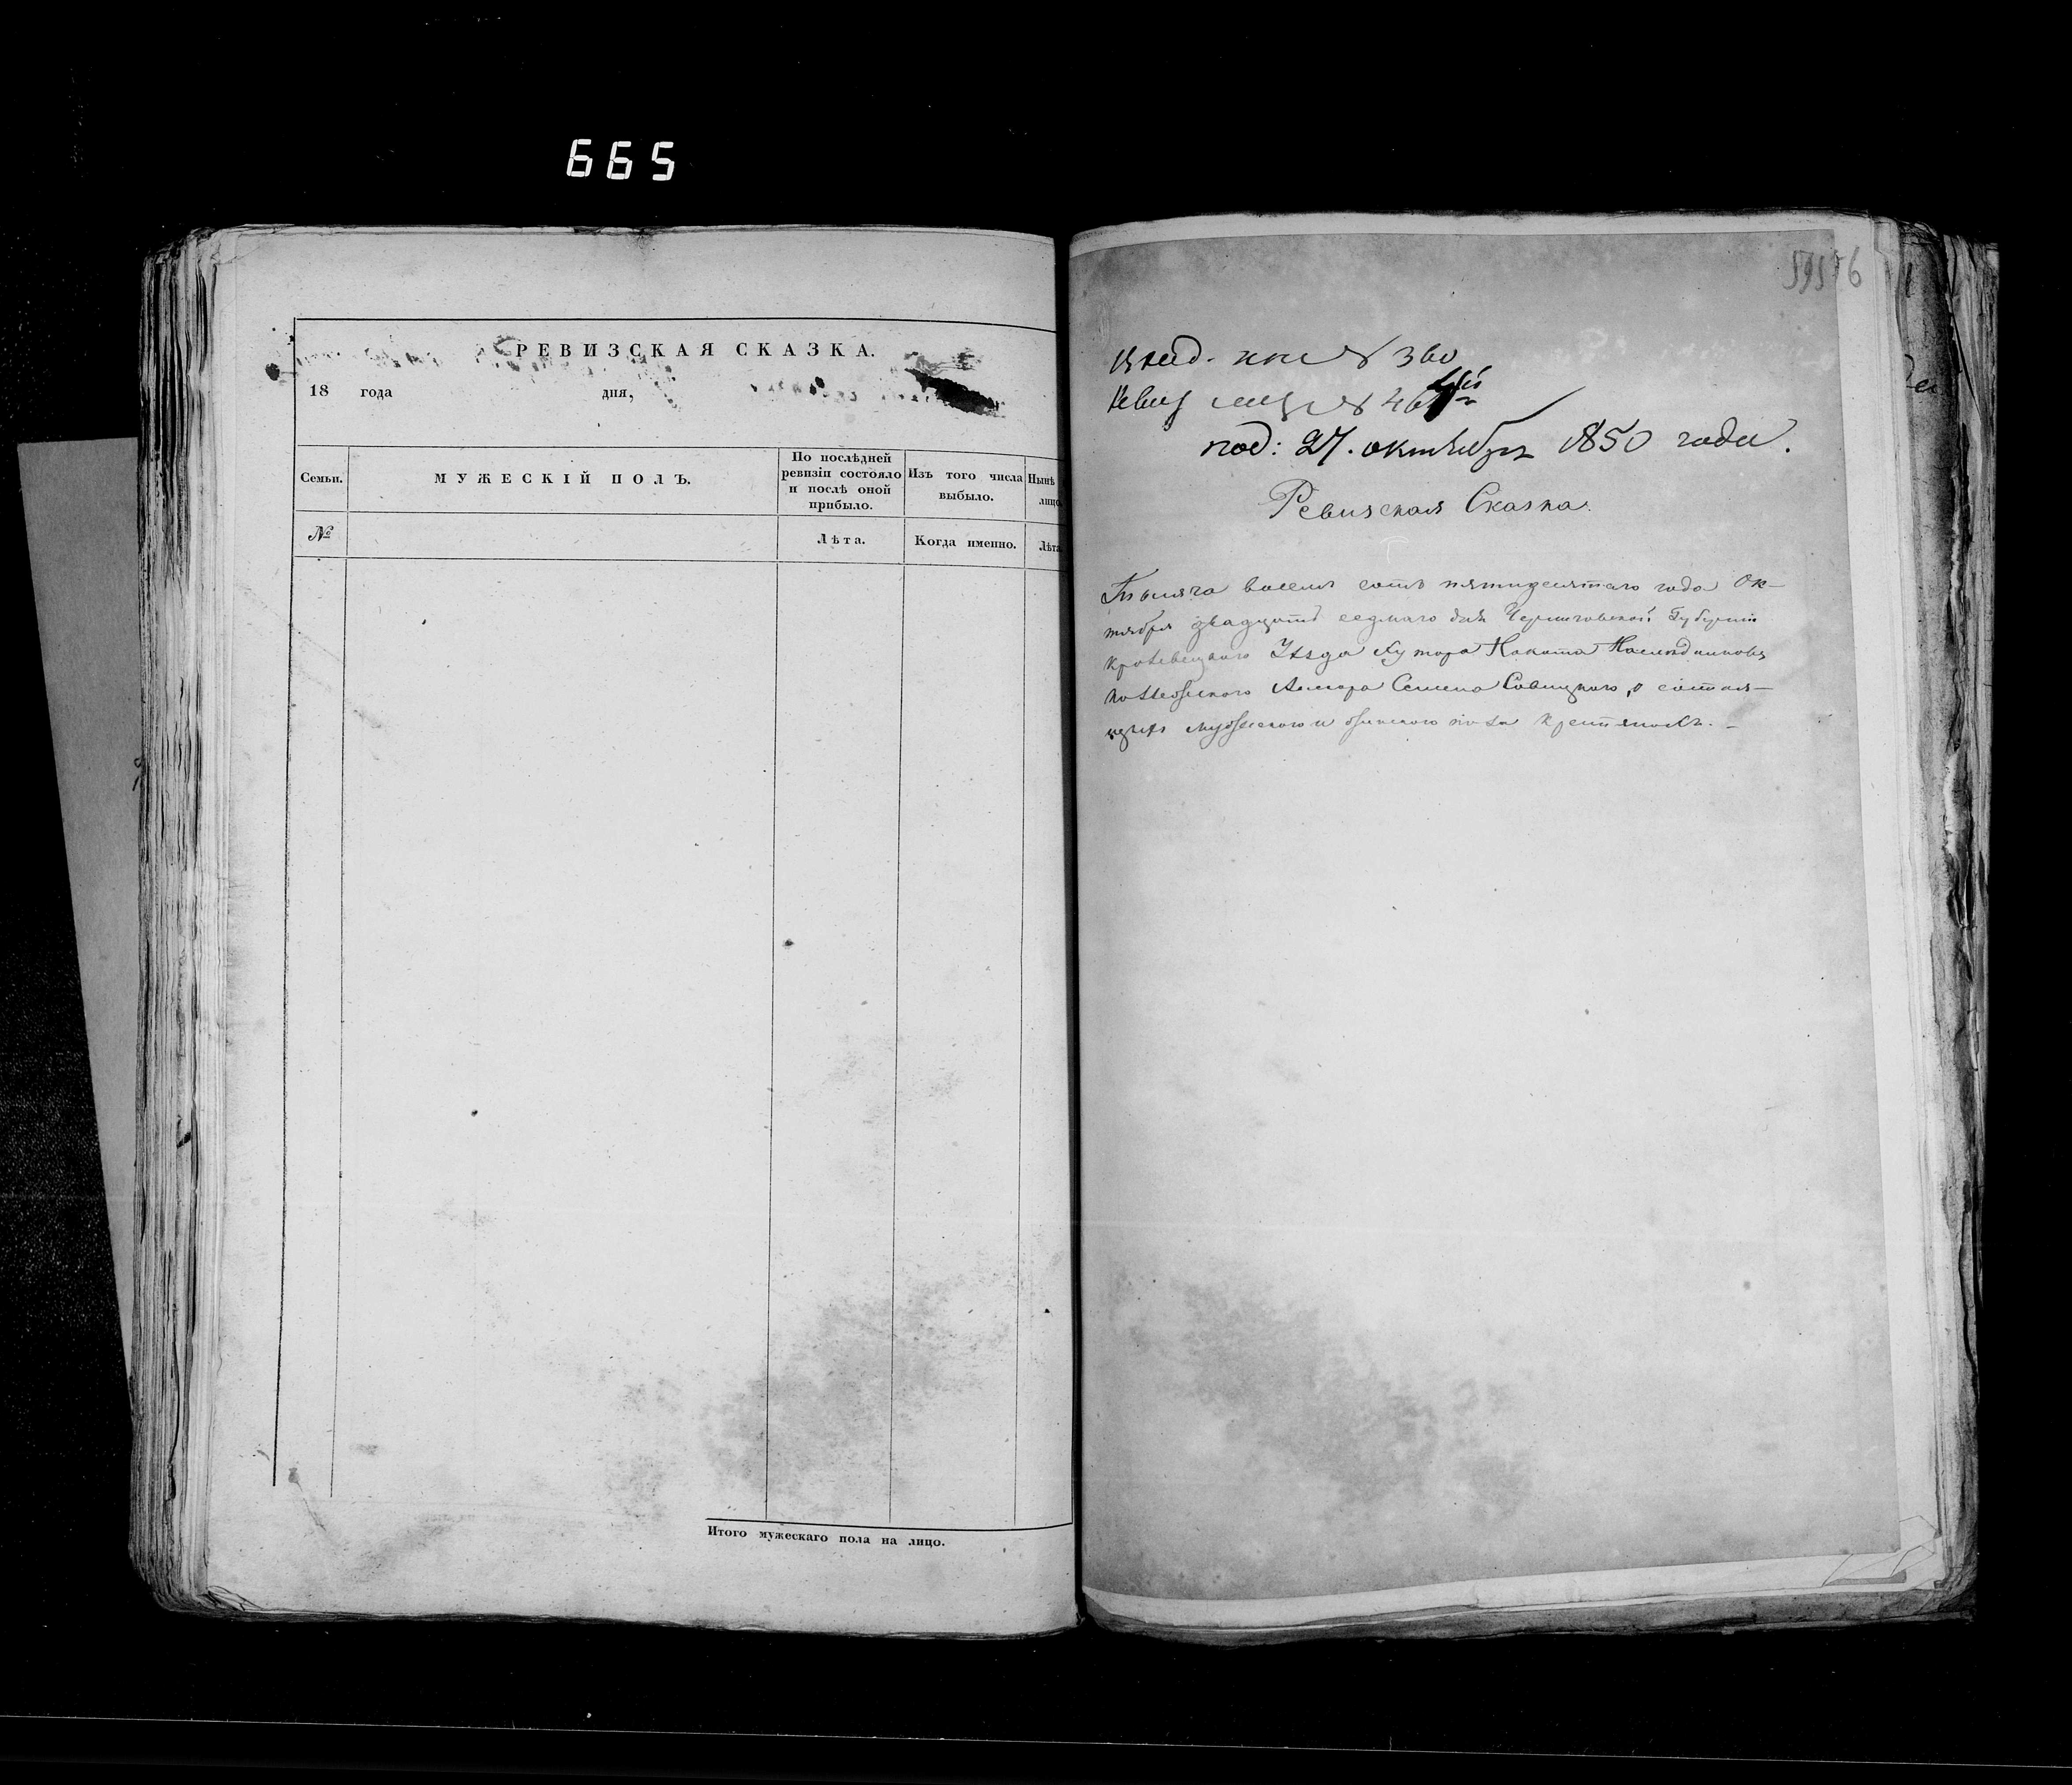 665
РЕВИЗСКАЯ СКАЗКА.
18 года дня,
Семьи.
МУЖЕСКІЙ ПОЛЪ.
По послѣдней
ревизіи состояло
и послѣ оной
прибыло.
Изъ того числа
выбыло.
Нынѣ
лицо
№
Лѣта.
Когда именно.
Лѣта
Итого мужескаго пола на лицо.
№ 360
№
под: 27. октября 1850 года.
Ревизская Сказка.
Тысяча восемь сотъ пятидесятаго года Ок-
тября двадцать седмаго дня Черниговской Губерніи
Кролевецкаго Уѣзда Хутора Наслѣдниковъ
Семена Савицкаго, о состоя-
щихъ мужескаго и женскаго пола крестьянахъ. -